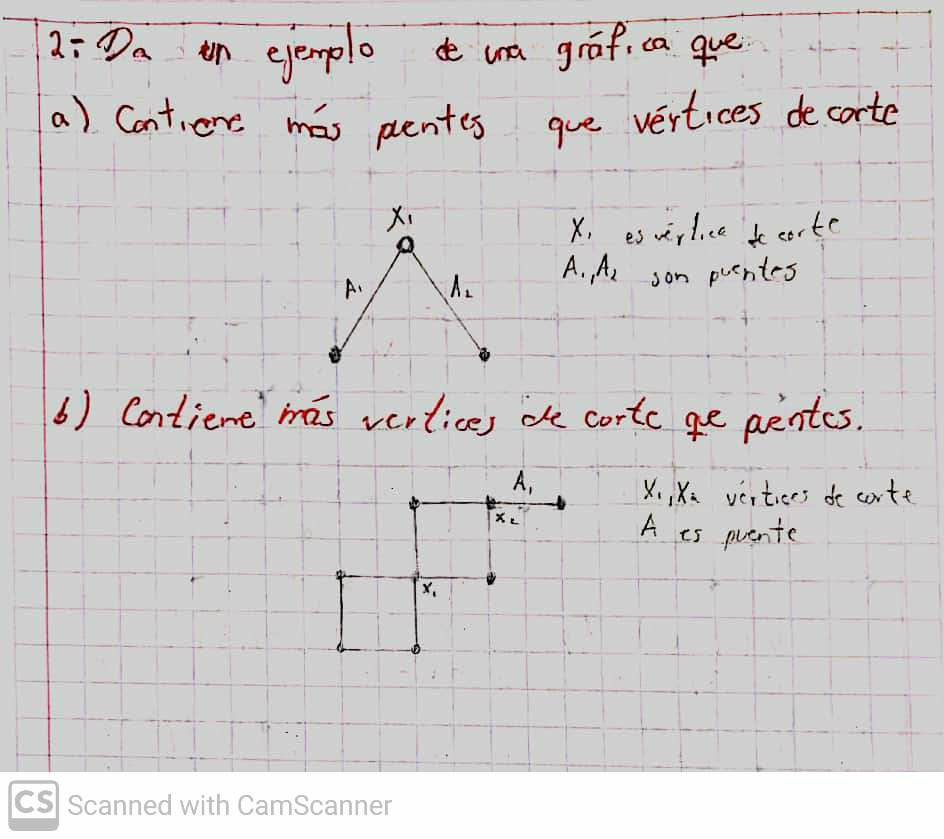 2.- Da un ejemplo de una gráfica que
a) Contiene más pentes que vértices de corte
X₁
X₁ es vértice de corte
A₁ A₂
A₁, A₂ son puentes
b) Contiene más vertices de corte que pentes.
A₁
X₁, X₂ vértices de corte
x₂
A es puente
x₁
CS Scanned with CamScanner